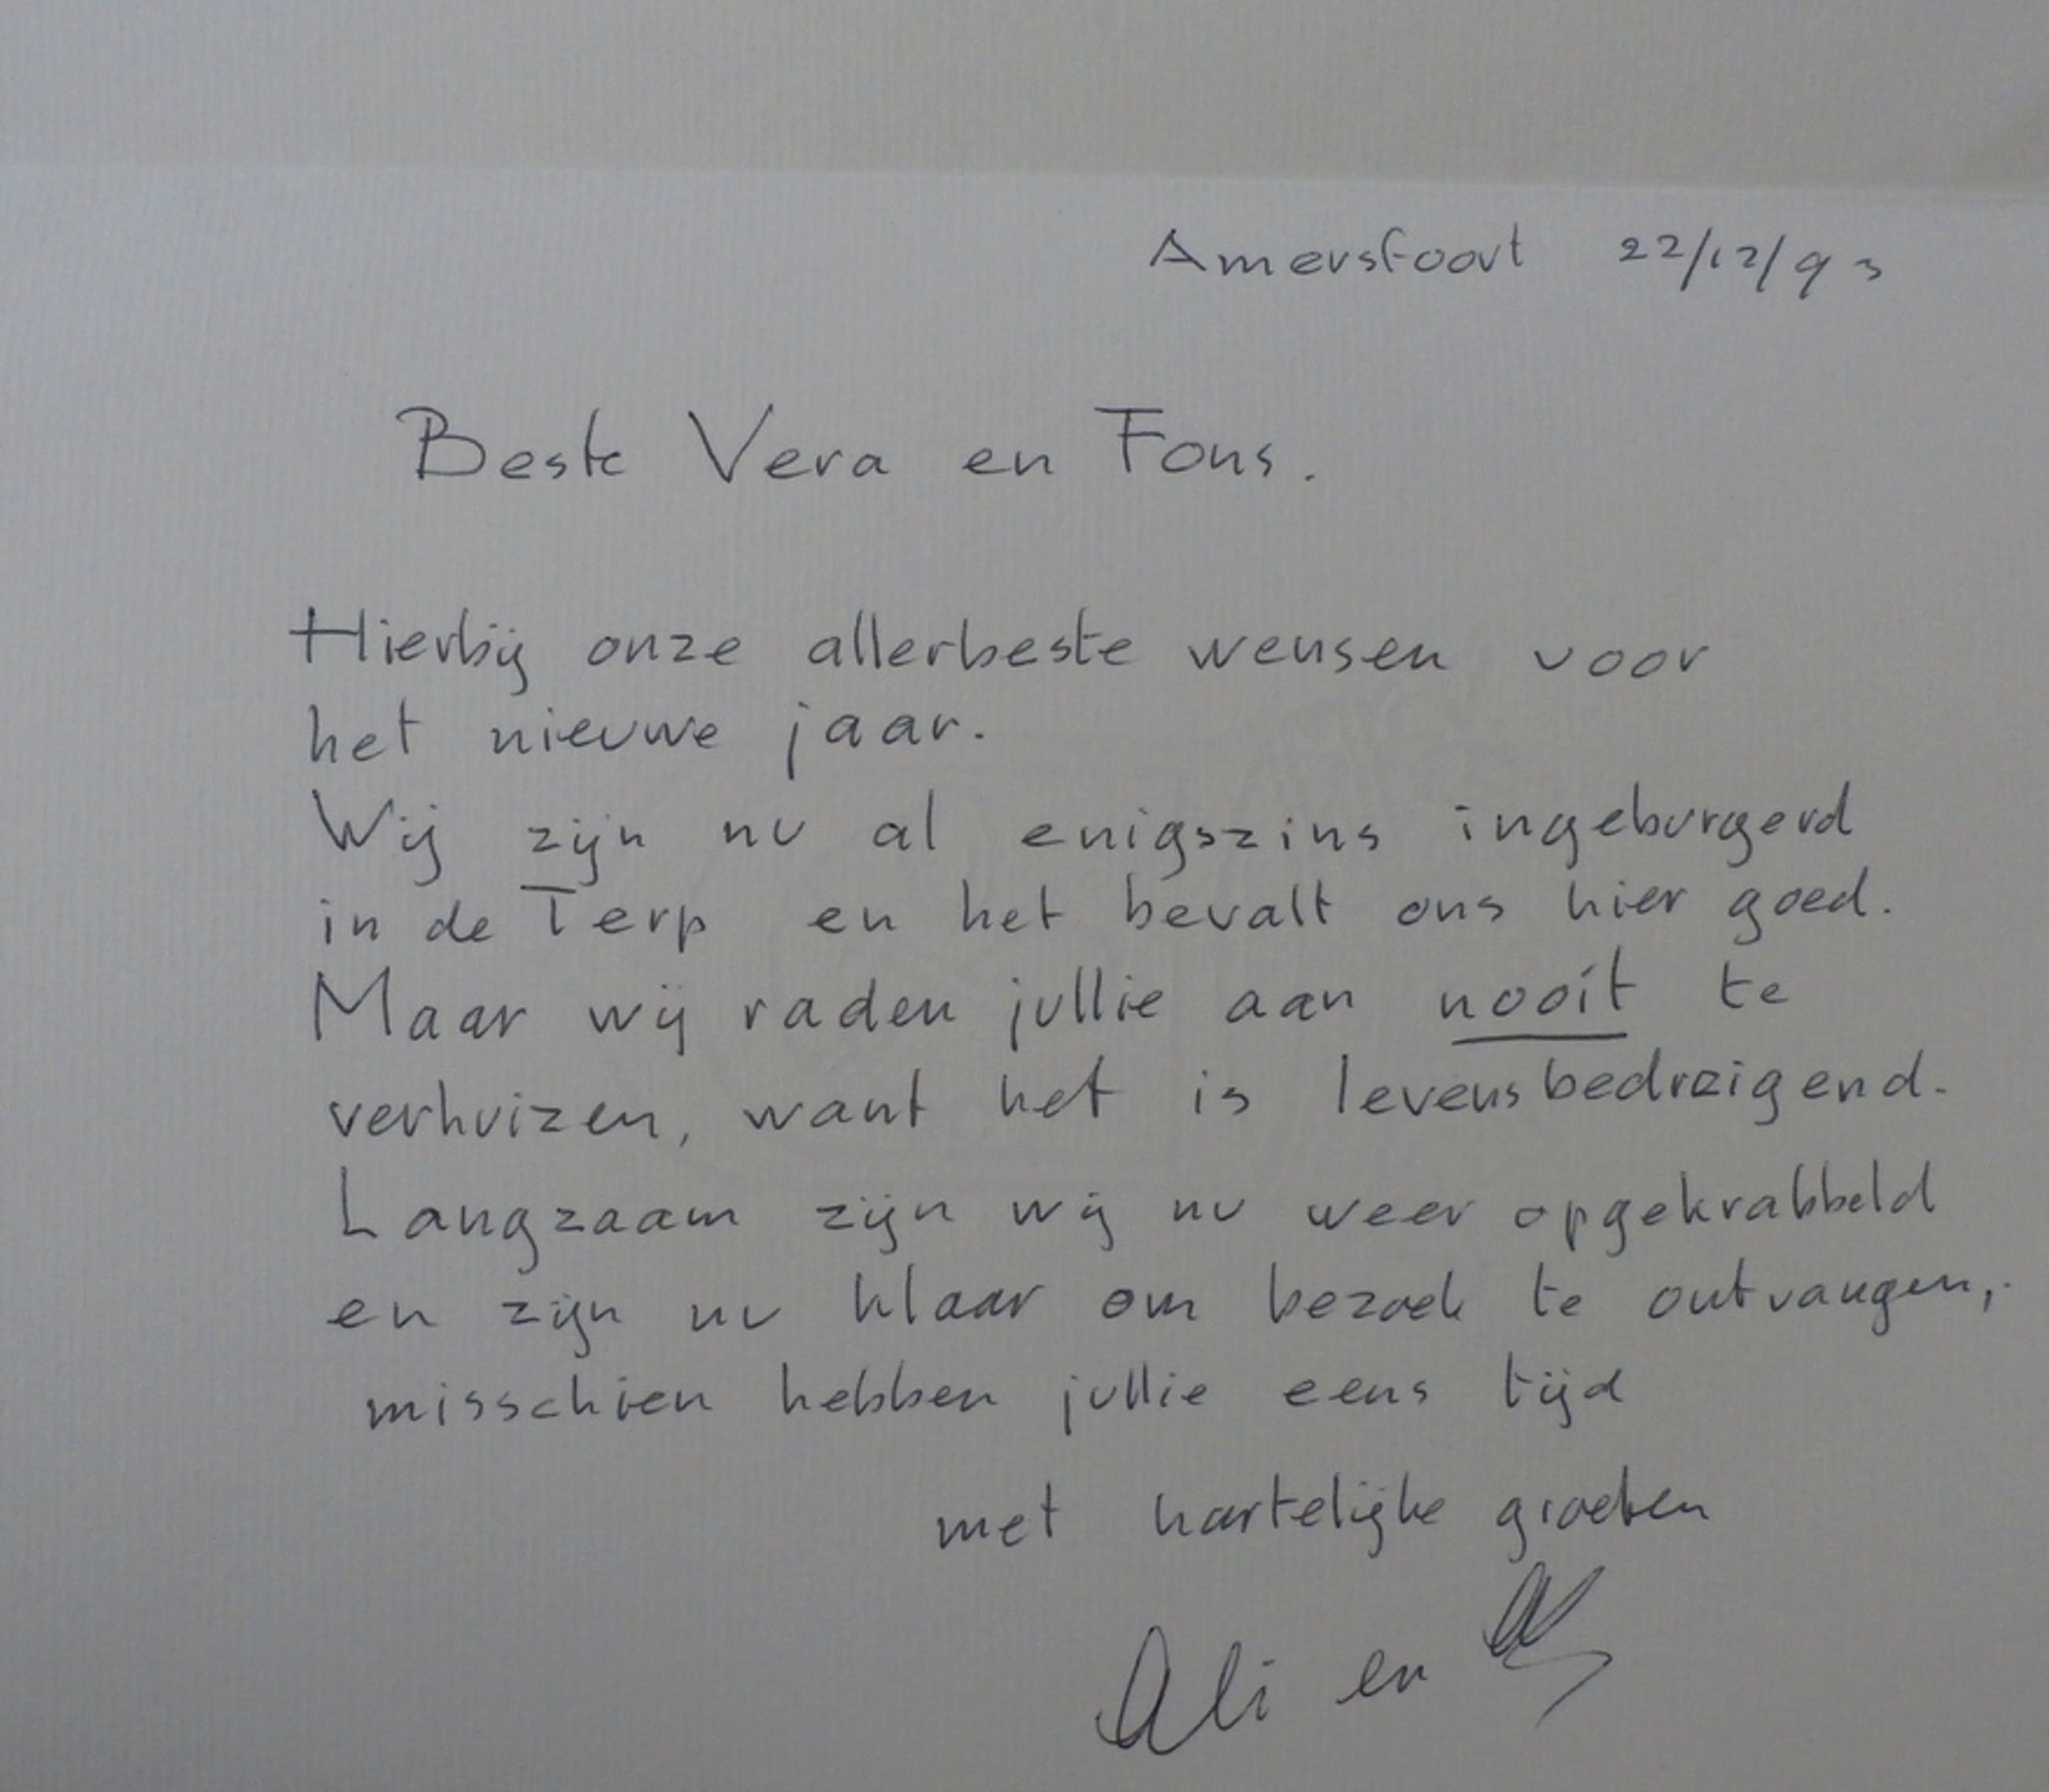 Amersfoort 22/12/93
Beste Vera en Fons.
Hierbij onze allerbeste wensen voor
het nieuwe jaar.
Wij zijn nu al enigszins ingeburgerd
in de Terp en het bevalt ons hier goed.
Maar wij raden jullie aan nooit te
verhuizen, want het is levensbedreigend.
Langzaam zijn wij nu weer opgekrabbeld
en zijn nu klaar om bezoek te ontvangen,
misschien hebben jullie eens tijd
met hartelijke groeten
Ali en